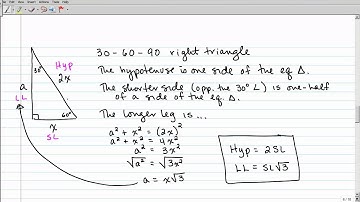 30-60-90 right triangle
The hypotenuse is one side of the eq Δ.
The shorter side (opp. the 30° ∠) is one-half
of a side of the eq Δ.
The longer leg is ...
a² + x² = (2x)²
a² + x² = 4x²
a² = 3x²
√a² = √3x²
a = x√3
Hyp = 2SL
LL = SL√3
30°
Hyp
2x
a
LL
60°
x
SL